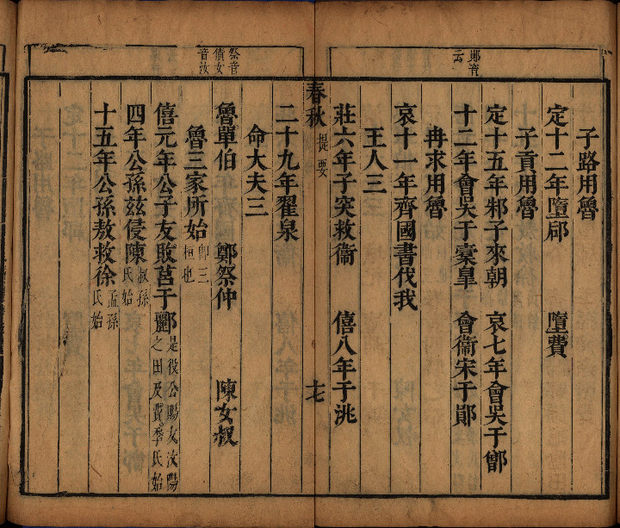 鄖音
云
子路用魯
定十二年墮郈　墮費
子貢用魯
定十五年邾子來朝　哀七年會吳于鄫
十二年會吳于橐皐　會衞宋于鄖
冉求用魯
哀十一年齊國書伐我
王人三
莊六年子突救衞　僖八年于洮
春秋 提要　十七
祭音
債女
音汝
二十九年翟泉
命大夫三
魯單伯　鄭祭仲　陳女叔
魯三家所始 即三桓也
僖元年公子友敗莒于酈 是役公賜友汶陽之田及費季氏始
四年公孫玆侵陳 叔孫氏始
十五年公孫敖救徐 孟孫氏始